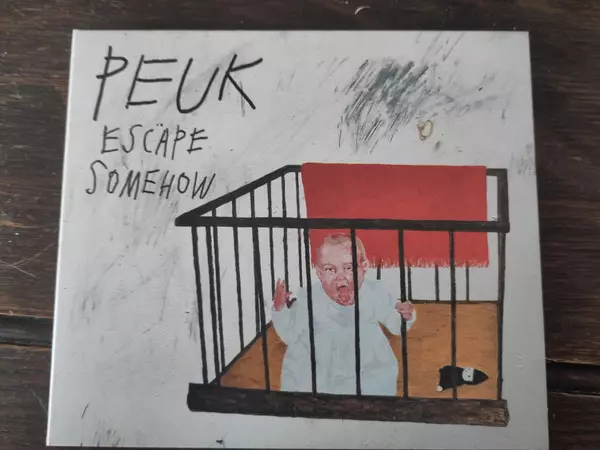 PEUK
ESCÄPE
SOMEHOW